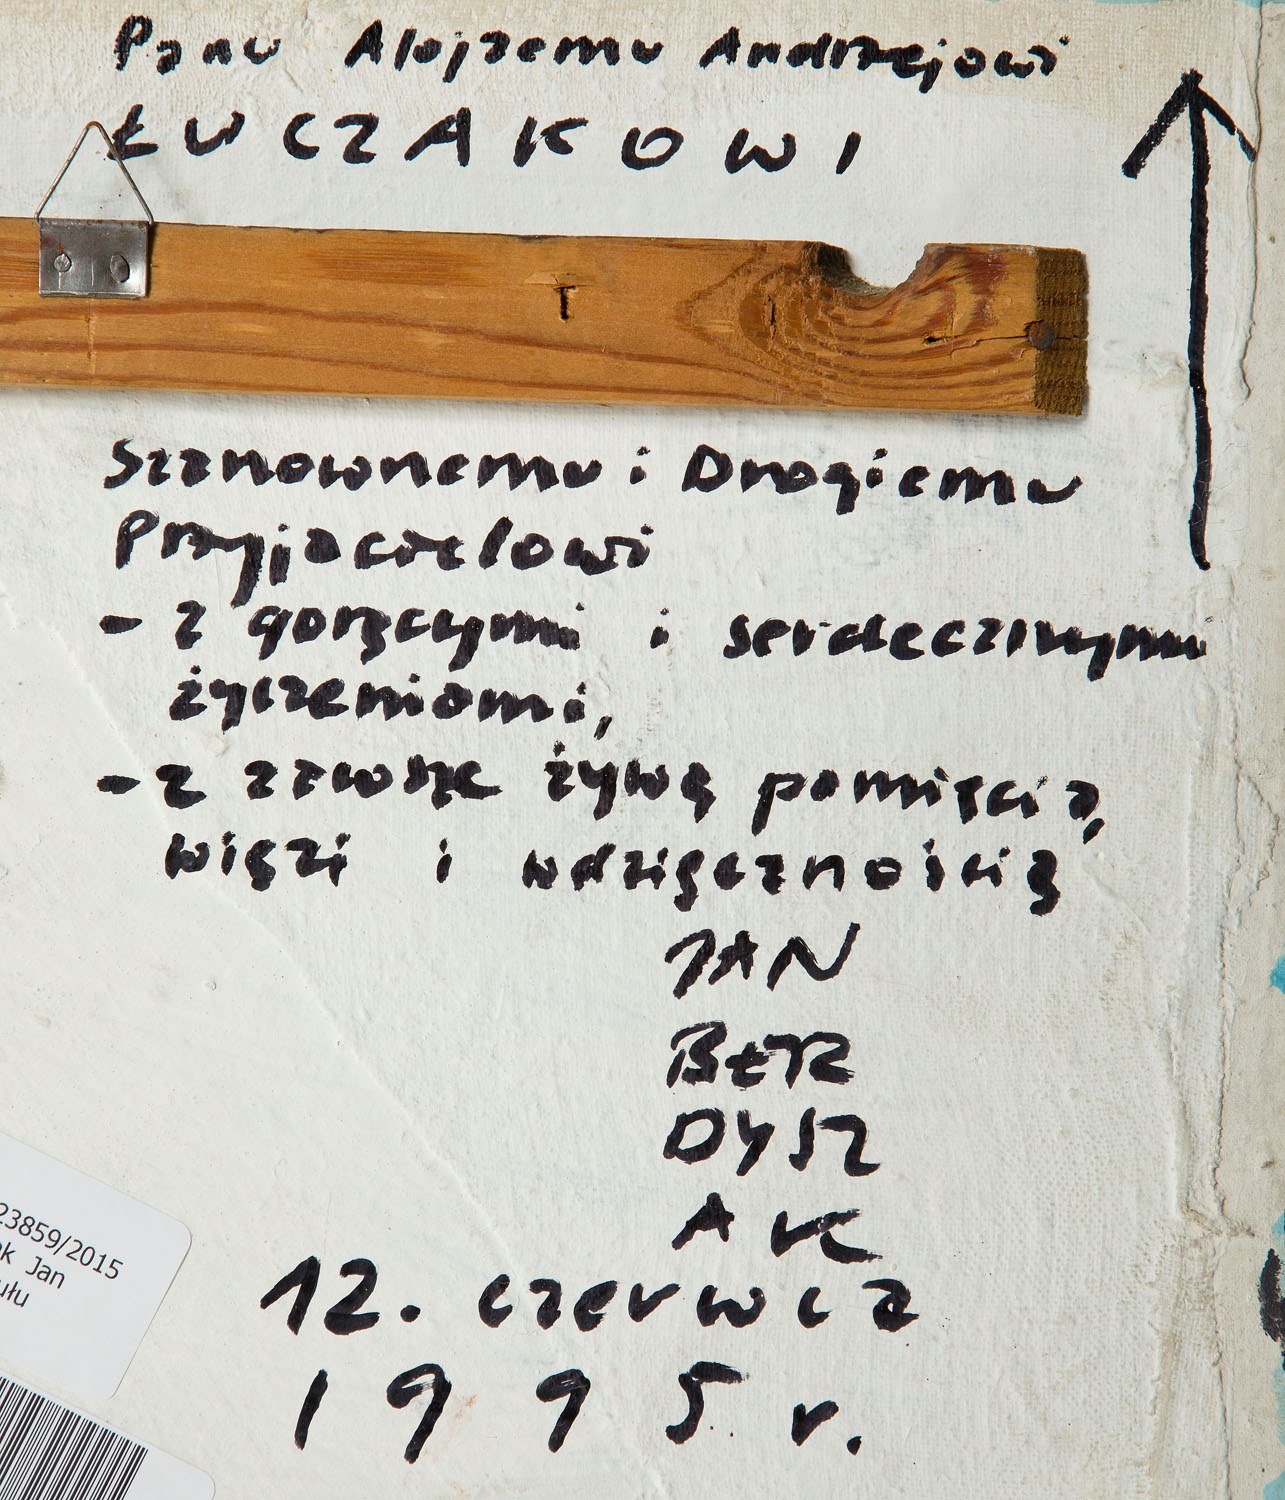 Panu Alojzemu Andrzejowi
ŁUCZAKOWI
Szanownemu i Drogiemu
Przyjacielowi
- z gorącymi i serdecznymi
życzeniami,
- z zawsze żywą pamięcią,
więzi i wdzięcznością
JAN
BER
DYSZ
AK
12. czerwca
1995 r.
23859/2015
ak Jan
ułu